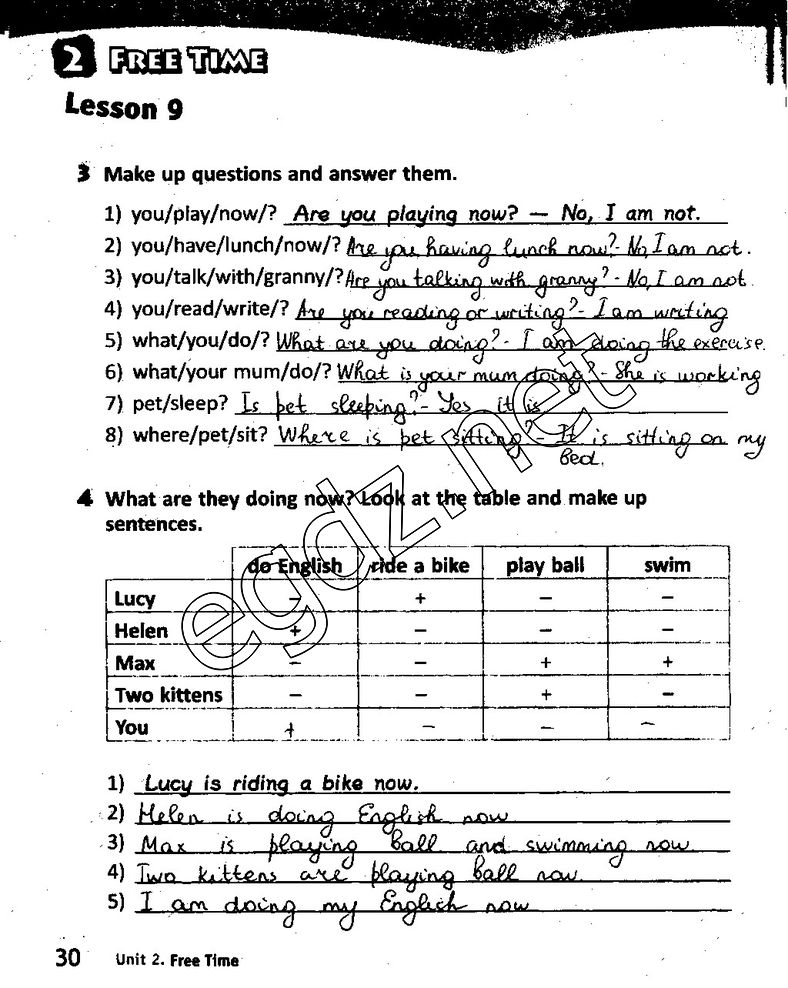 2 FREE TIME
Lesson 9
3 Make up questions and answer them.
1) you/play/now/? Are you playing now? — No, I am not.
2) you/have/lunch/now/? Are you having lunch now? - No, I am not.
3) you/talk/with/granny/? Are you talking with granny? - No, I am not.
4) you/read/write/? Are you reading or writing? - I am writing
5) what/you/do/? What are you doing? - I am doing the exercise.
6) what/your mum/do/? What is your mum doing? - She is working
7) pet/sleep? Is pet sleeping? - Yes it is
8) where/pet/sit? Where is pet sitting? - It is sitting on my
bed.
4 What are they doing now? Look at the table and make up
sentences.
do English ride a bike play ball swim
Lucy – + – –
Helen + – – –
Max – – + +
Two kittens – – + –
You + – – –
egdz.net
1) Lucy is riding a bike now.
2) Helen is doing English now
3) Max is playing ball and swimming now
4) Two kittens are playing ball now.
5) I am doing my English now
30 Unit 2. Free Time